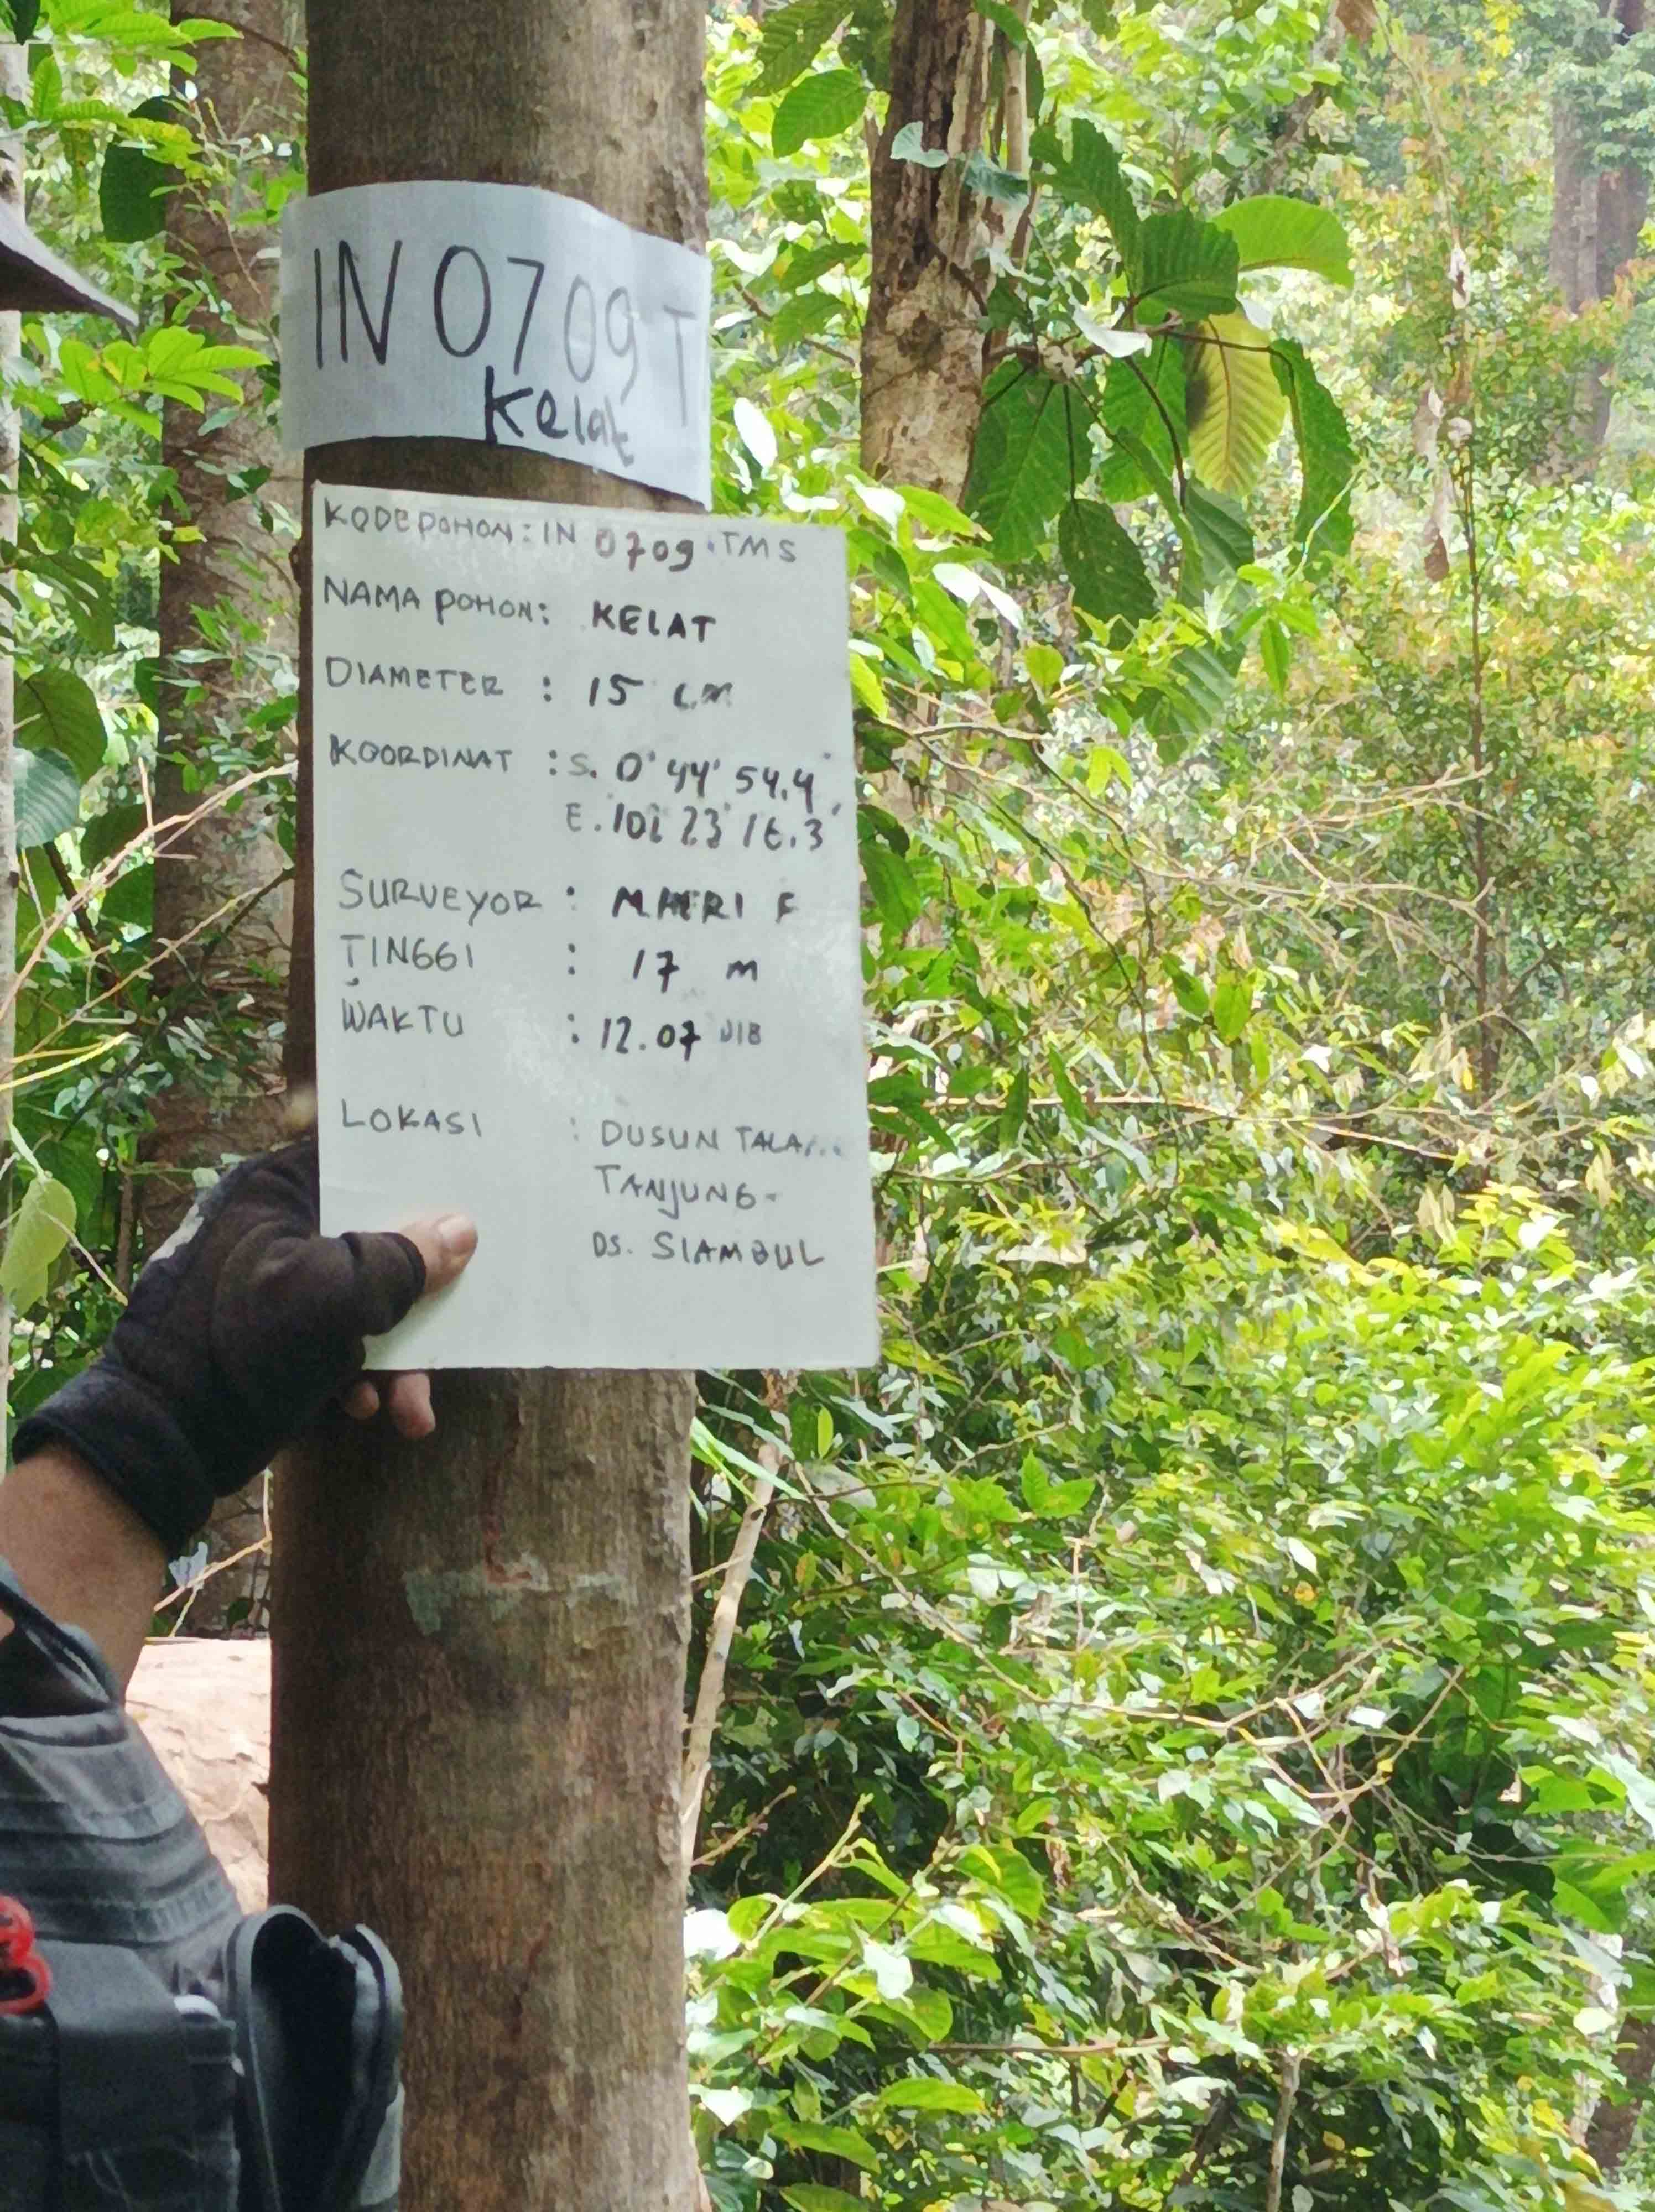 IN 0709 T
Kelat
KODE POHON : IN 0709 TMS
NAMA POHON : KELAT
DIAMETER : 15 CM
KOORDINAT : S. 0° 44' 54.4"
E. 102 23' 16.3"
SURVEYOR : F
TINGGI : 17 m
WAKTU : 12.07 WIB
LOKASI : DUSUN
TANJUNG
DS. SIAMBUL